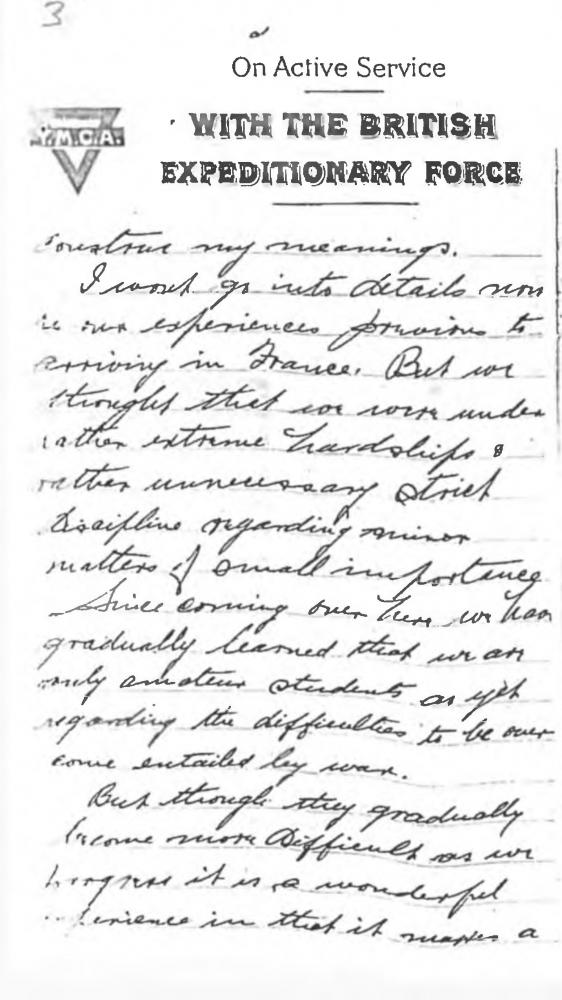 3
On Active Service
Y.M.C.A.
WITH THE BRITISH
EXPEDITIONARY FORCE
construe my meanings.
I wont go into details now
re our experiences previous to
arriving in France. But we
thought that we were under
rather extreme hardships &
rather unnecessary strict
Discipline regarding minor
matters of small importance
Since coming over here we have
gradually learned that we are
only amateur students as yet
regarding the difficulties to be over
come entailed by war.
But though they gradually
become more Difficult as we
progress it is a wonderful
experience in that it makes a